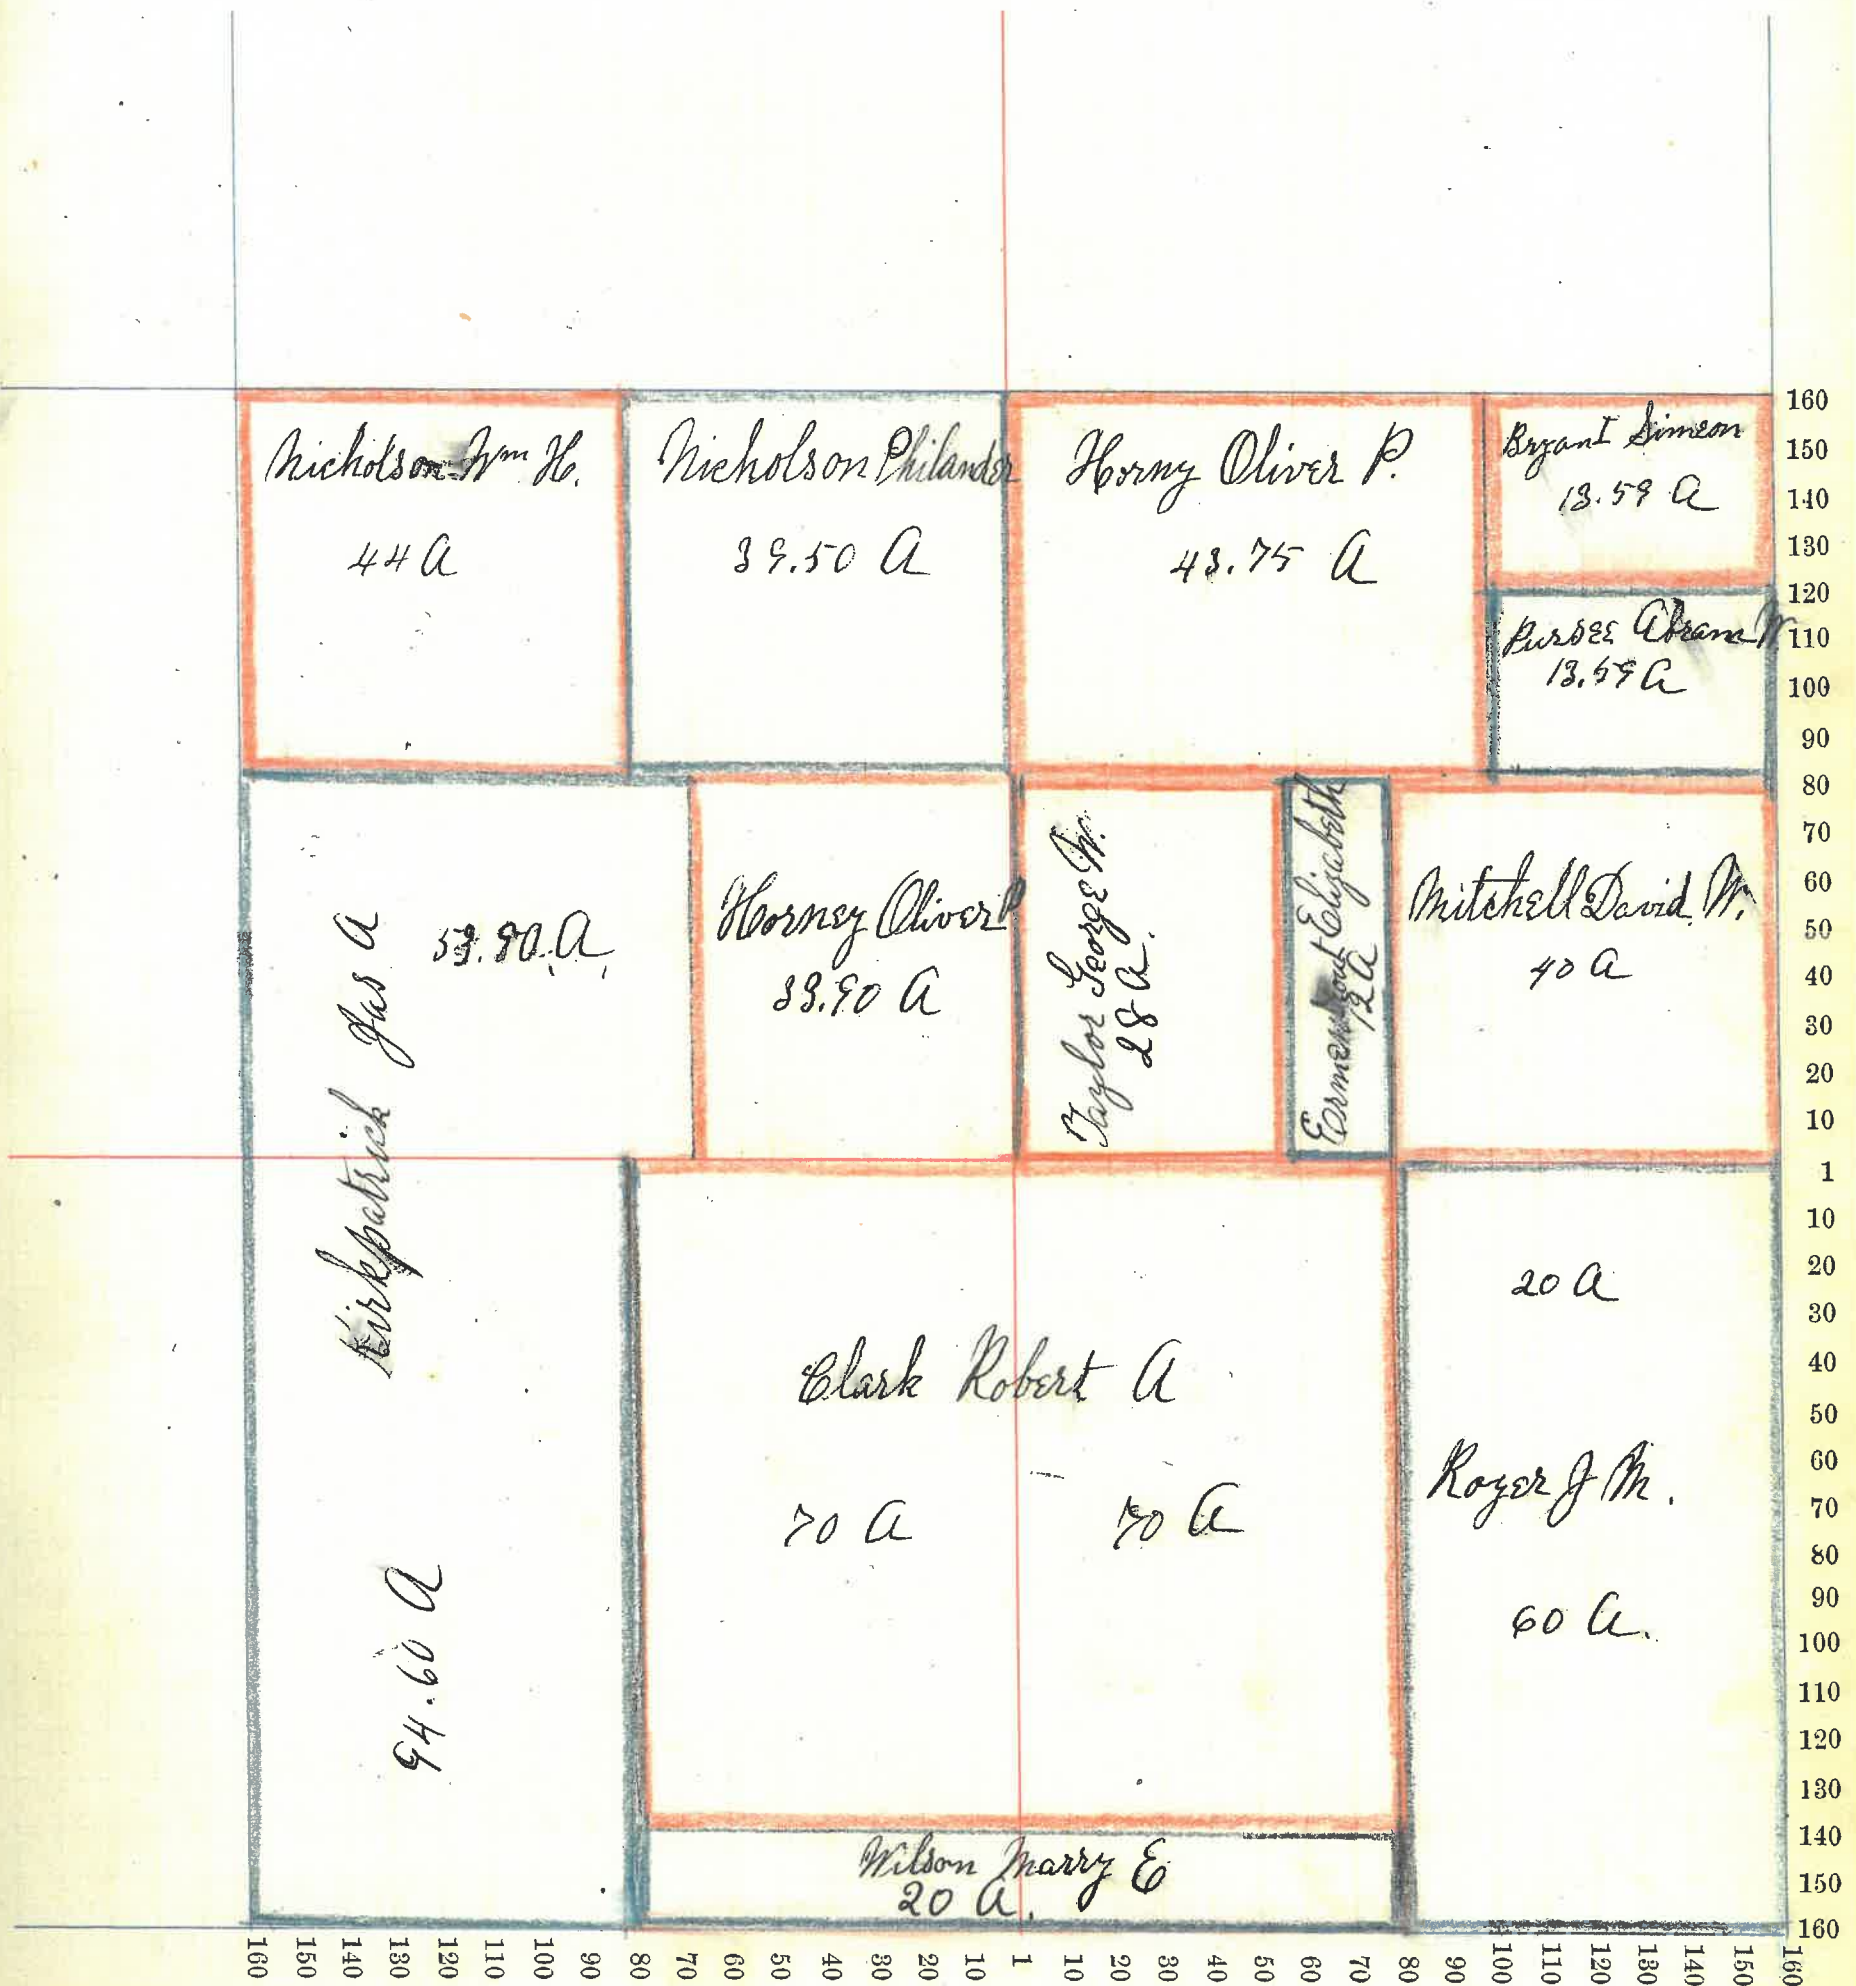 Nicholson Wm H.
44 A
Nicholson Philander
39.50 A
Horny Oliver P.
43.75 A
Bryant Simeon
13.59 A
Abram W
13.59 A
Kirkpatrick Jas A
53.90 A
94.60 A
Horney Oliver P
33.90 A
Taylor George W.
28 A.
Elizabeth
12 A
Mitchell David W.
40 A
Clark Robert A
70 A
70 A
20 A
Royer J M.
60 A.
Wilson Marry E
20 A.
160
150
140
130
120
110
100
90
80
70
60
50
40
30
20
10
1
10
20
30
40
50
60
70
80
90
100
110
120
130
140
150
160
160 150 140 130 120 110 100 90 80 70 60 50 40 30 20 10 1 10 20 30 40 50 60 70 80 90 100 110 120 130 140 150 160